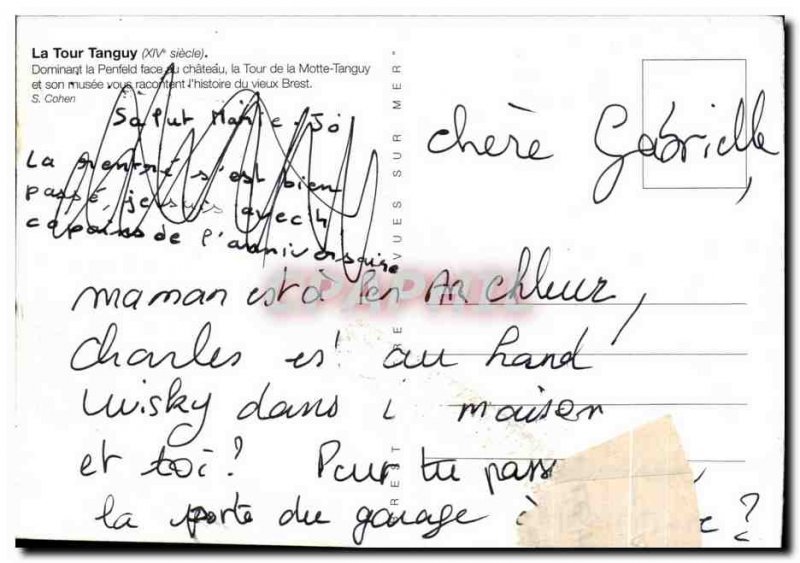 La Tour Tanguy (XIVe siècle).
Dominant la Penfeld face au château, la Tour de la Motte-Tanguy
et son musée vous racontent l'histoire du vieux Brest.
S. Cohen
Salut Marie-Jo
La rentré s'est bien
passé, je suis avec 4
copains de l'anniversaire
VUES SUR MER
chère Gabrielle,
maman est à Pen Ar Chleuz,
Charles es' au hand!
Wisky dans maison
et toi? Pour tu pass
la porte du garage à ?